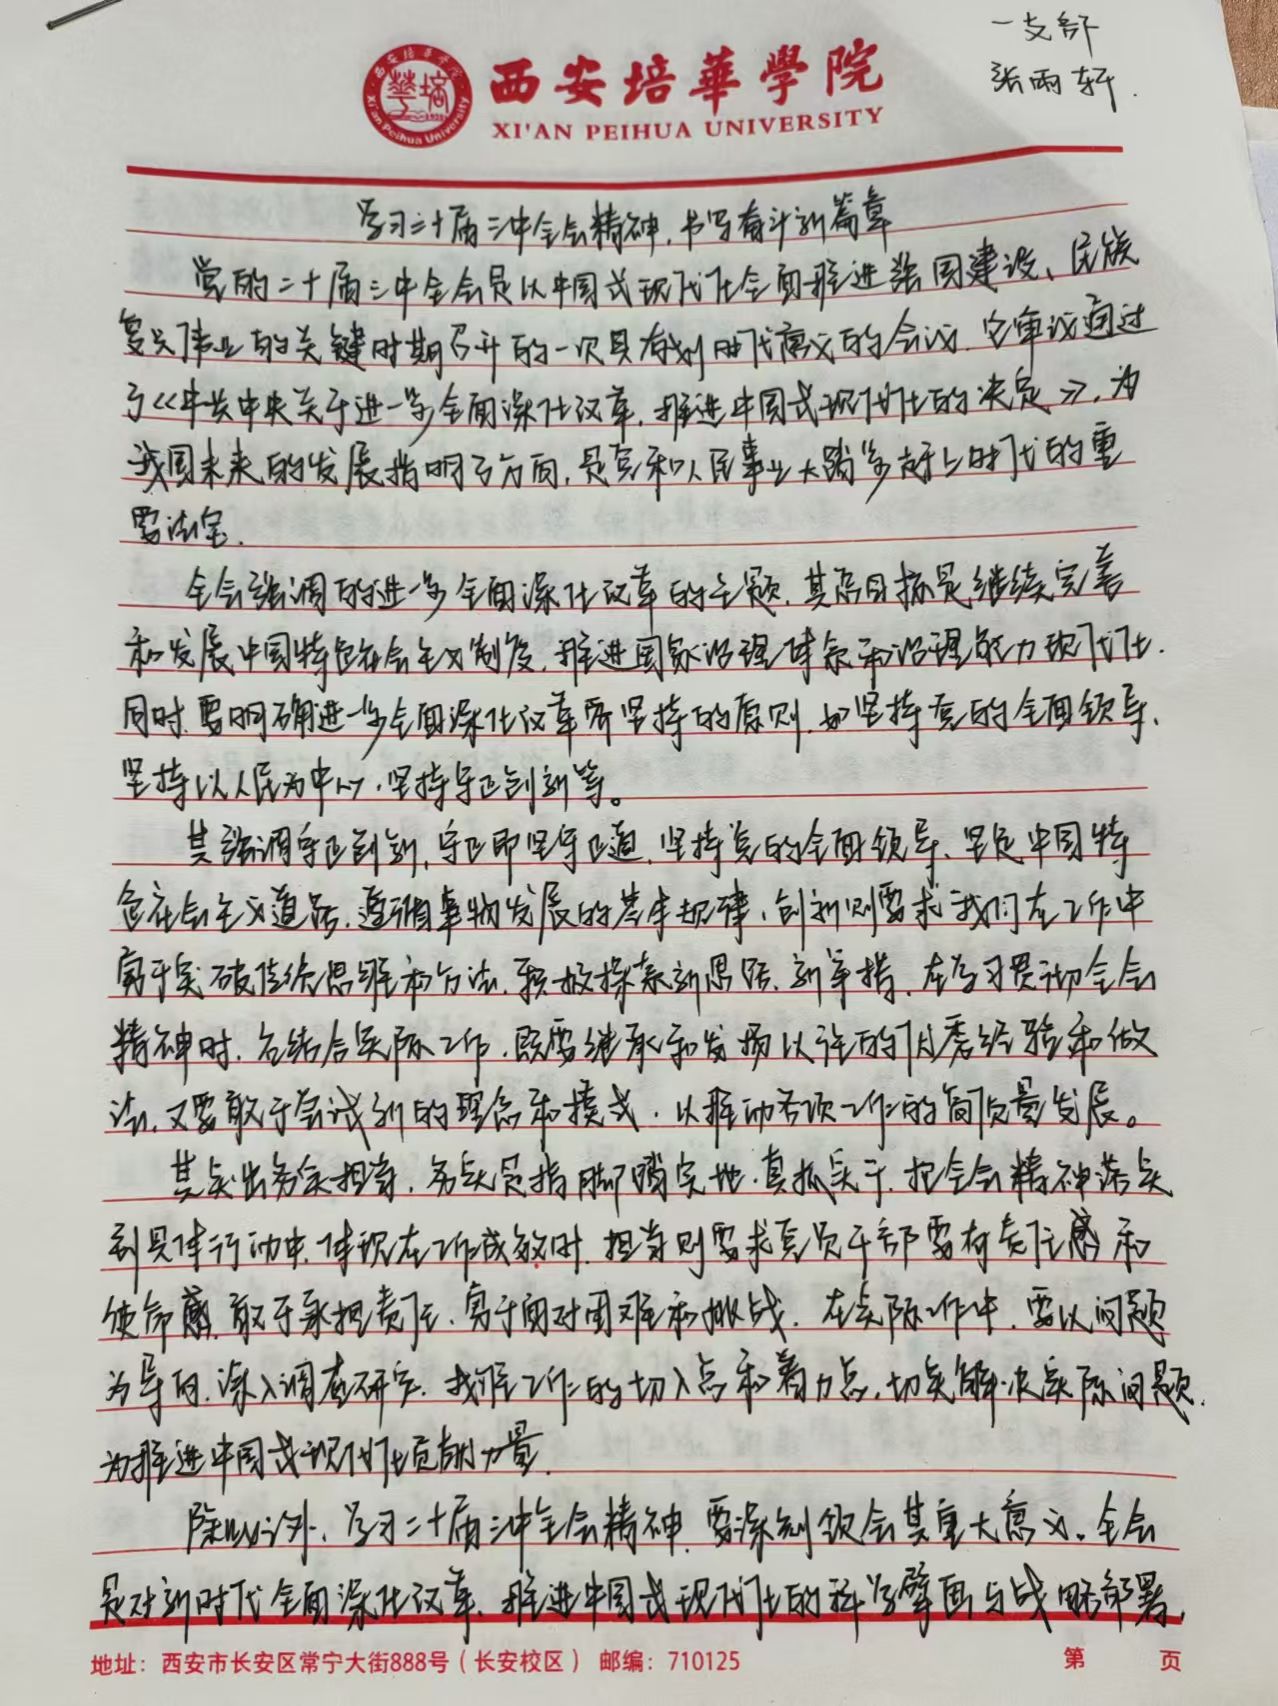 一支部
张雨轩.
西安培華學院
XI'AN PEIHUA UNIVERSITY
西安培华学院
Xi'an Peihua University
学习二十届三中全会精神,书写奋斗新篇章
党的二十届三中全会是以中国式现代化全面推进强国建设、民族
复兴伟业的关键时期召开的一次具有划时代意义的会议,它审议通过
了《中共中央关于进一步全面深化改革,推进中国式现代化的决定》,为
我国未来的发展指明了方向,是党和人民事业大踏步赶上时代的重
要法宝.
全会强调的进一步全面深化改革的主题,其总目标是继续完善
和发展中国特色社会主义制度,推进国家治理体系和治理能力现代化.
同时,要明确进一步全面深化改革所坚持的原则,如坚持党的全面领导、
坚持以人民为中心,坚持守正创新等。
其强调守正创新,守正即坚守正道,坚持党的全面领导、坚定中国特
色社会主义道路,遵循事物发展的基本规律,创新则要求我们在工作中
勇于突破传统思维和方法,积极探索新思路、新举措,在学习贯彻全会
精神时,应结合实际工作,既要继承和发扬以往的优秀经验和做
法,又要敢于尝试新的理念和模式,以推动各项工作的高质量发展。
其突出务实担当,务实是指脚踏实地,真抓实干,把全会精神落实
到具体行动中,体现在工作成效时.担当则要求党员干部要有责任感和
使命感,敢于承担责任,勇于面对困难和挑战.在实际工作中,要以问题
为导向,深入调查研究,找准工作的切入点和着力点,切实解决实际问题,
为推进中国式现代化贡献力量.
除此之外,学习二十届三中全会精神,要深刻领会其重大意义。全会
是对新时代全面深化改革、推进中国式现代化的科学擘画与战略部署,
地址：西安市长安区常宁大街888号（长安校区） 邮编：710125 第 页